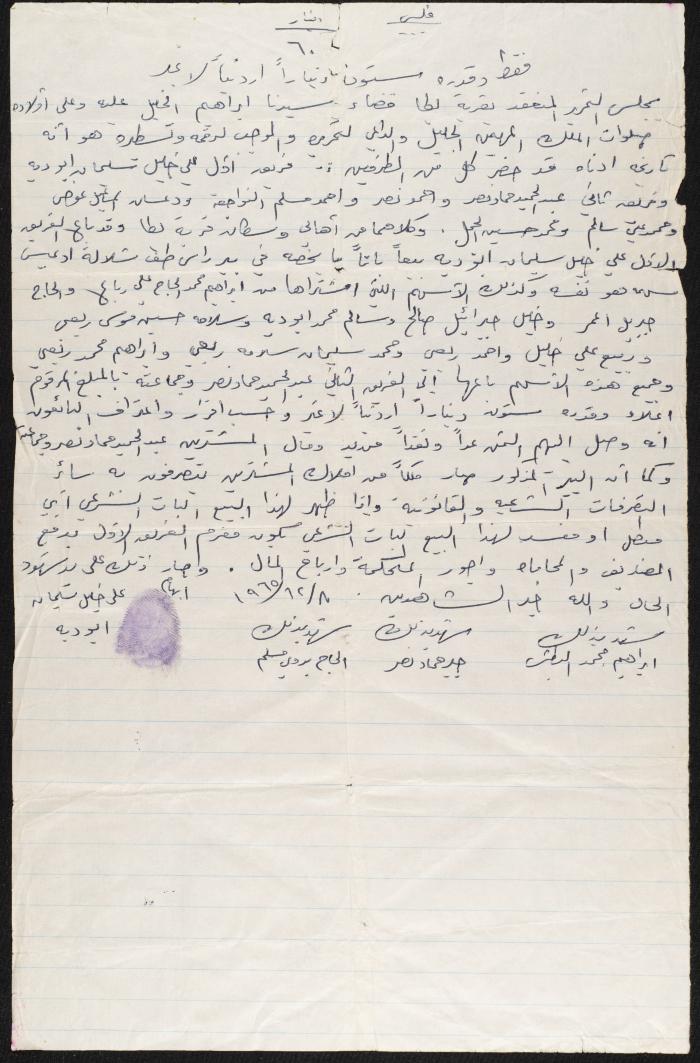 فلس دينار
٦٠
فقط وقدره ستون ديناراً اردنياً لا غير
بمجلس التحرير المنعقد بقرية يطا قضاء سيدنا ابراهيم الخليل عليه وعلى أولاده
صلوات الملك المهيمن الجليل والداعي لتحريره والموجب لرقمه وتسطيره هو أنه
تاريخه ادناه قد حضر كل من الطرفين :- فريق أول علي خليل سليمان ابوديه
وفريق ثاني عبدالحميد حمادنصر واحمد نصر واحمد مسلم النواجعة ودعسان اسماعيل عوض
ومحمد علي سالم ومحمد حسين الجمل . وكلاهما من أهالي وسكان قرية يطا وقد باع الفريق
الاول علي خليل سليمان ابوديه بيعاً باتاً ما يخصه في بير راس طف شلالة ادعيس
هو نفسه وكذلك الأسهم التي اشتراها من ابراهيم محمد الحاج علي رباع والحاج
جبريل العمر وخليل جبرائيل صالح وسالم محمد ابوديه وسلامه حسين موسى ربعي
وربيع علي خليل واحمد ربعي ومحمد سليمان سلامه ربعي وابراهيم محمد ربعي
وجميع هذه الأسهم باعها إلى الفريق الثاني عبدالحميد حمادنصر وجماعته بالمبلغ المرقوم
اعلاه وقدره ستون ديناراً اردنياً لا غير وحسب اقرار واعتراف البائعون
أنه وصل اليهم الثمن عداً ونقداً من يد ومال المشترين عبدالحميد حمادنصر وجماعته
وكما أن البير المذكور صار ملكاً من املاك المشترين يتصرفون به سائر
التصرفات الشرعيه والقانونية وإذا ظهر لهذا البيع البات الشرعي أي
مبطل او مفسد لهذا البيع البات الشرعي يكون مغرم الفريق الأول بدفع
المصاريف والمحاماه واجور المحكمة وارباح المال . وصار ذلك على يد شهود
الحال والله خير الشاهدين . ١٩٦٥/١٢/٨ ابهام علي خليل سليمان
ابوديه
شهد بذلك شهد بذلك شهد بذلك
ابراهيم محمد جبر حمادنصر الحاج بدوي مسلم